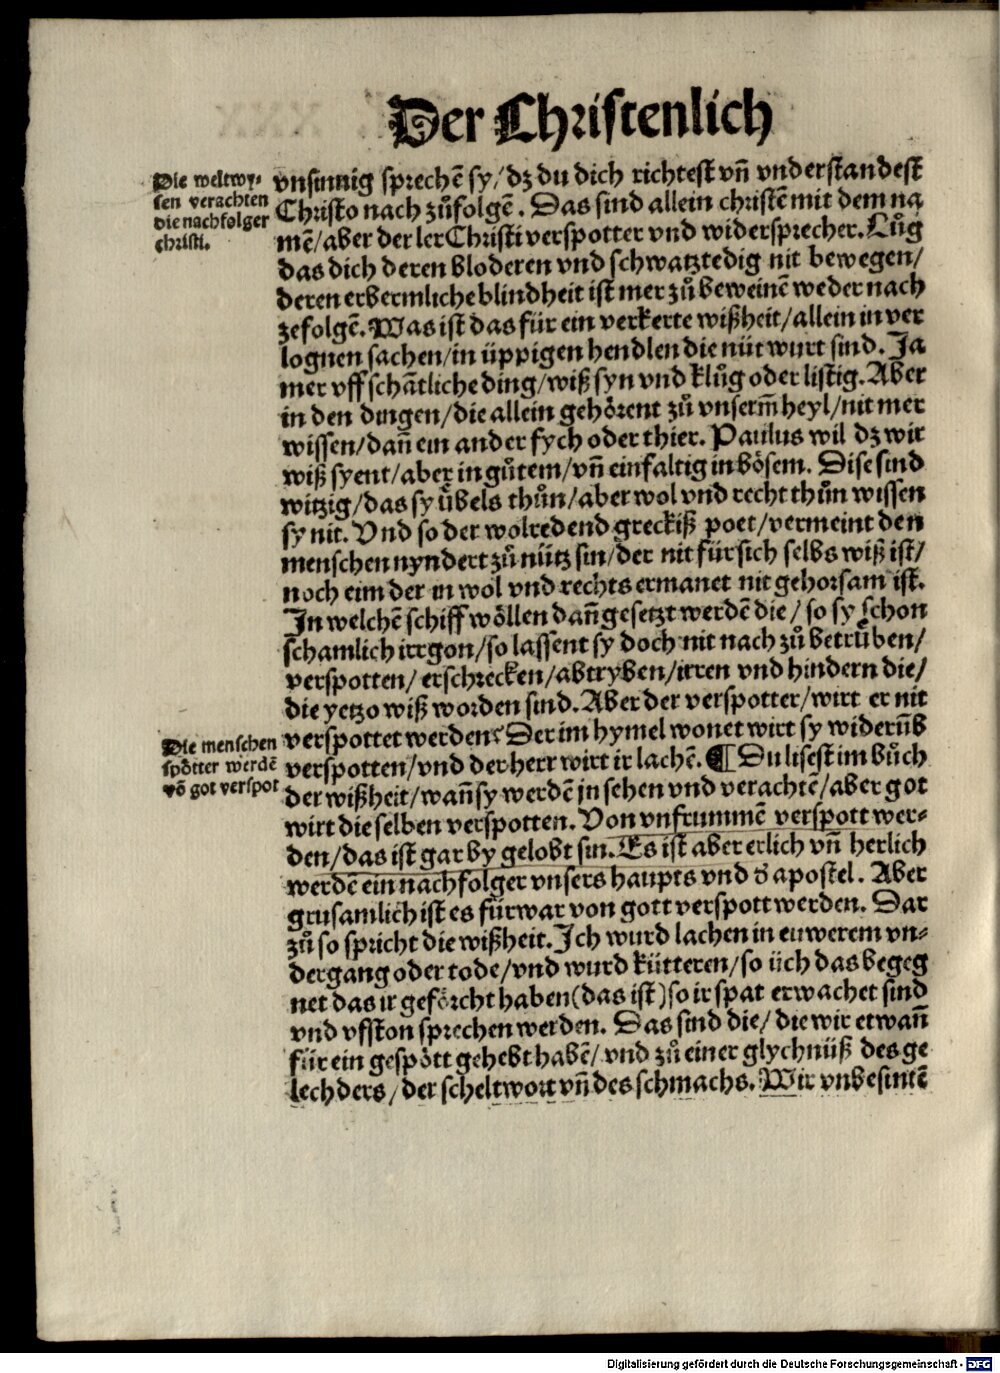 Der Christenlich
Die weltwy-
sen verachten
die nachfolger
christi.
vnsinnig sprechē sy/dz du dich richtest vn̄ vnderstandest
Christo nach zůfolgē. Das sind allein christē mit dem na
mē/aber der ler Christi verspotter vnd widersprecher. Lůg
das dich deren bloderen vnd schwatztedig nit bewegen/
deren erbermliche blindheit ist mer zů beweinē weder nach
zefolgē. Was ist das für ein verkerte wißheit/allein in ver
lognen sachen/in üppigen hendlen die nüt wurt sind. Ja
mer vff schātliche ding/wiß syn vnd klůg oder listig. Aber
in den dingen/die allein gehörent zů vnserm̄ heyl/nit mer
wissen/dan̄ ein ander fych oder thier. Paulus wil dz wir
wiß syent/aber in gůtem/vn̄ einfaltig in bösem. Dise sind
witzig/das sy übels thůn/aber wol vnd recht thůn wissen
sy nit. Vnd so der wolredend greckiß poet/vermeint den
menschen nyndert zů nütz sin/der nit für sich selbs wiß ist/
noch eim der in wol vnd rechts ermanet nit gehorsam ist.
In welchē schiff wöllen dan̄ gesetzt werdē die/so sy schon
schamlich irrgon/so lassent sy doch nit nach zů betrůben/
verspotten/erschrecken/abtryben/irren vnd hindern die/
die yetzo wiß worden sind. Aber der verspotter/wirt er nit
verspottet werden? Der im hymel wonet wirt sy widerūb
Die menschen
spötter werdē
vō got verspot
verspotten/vnd der herr wirt ir lachē. ¶ Du lisest im bůch
der wißheit/wan̄ sy werdē jn sehen vnd verachtē/aber got
wirt die selben verspotten. Von vnfrummē verspott wer-
den/das ist gar by gelobt sin. Es ist aber erlich vn̄ herlich
werdē ein nachfolger vnsers haupts vnd d apostel. Aber
grusamlich ist es fürwar von gott verspott werden. Dar
zů so spricht die wißheit. Ich wurd lachen in euwerem vn-
dergang oder tode/vnd wurd kütteren/so üch das begeg
net das ir geförcht haben(das ist)so ir spat erwachet sind
vnd vffston sprechen werden. Das sind die/die wir etwan̄
für ein gespött gehebt habē/vnd zů einer glychnüß des ge
lechders/der scheltwort vn̄ des schmachs. Wir vnbesintē
Digitalisierung gefördert durch die Deutsche Forschungsgemeinschaft - DFG